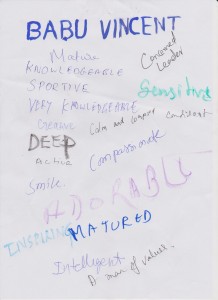 BABU VINCENT
Mature
Concerned
Leader
KNOWLEDGEABLE
SPORTIVE
Sensitive
VERY KNOWLEDGEABLE
Calm and
confident
DEEP
Active
Compassionate
Smile.
ADORABLE
INSPIRING
MATURED
Intelligent
A man of values.